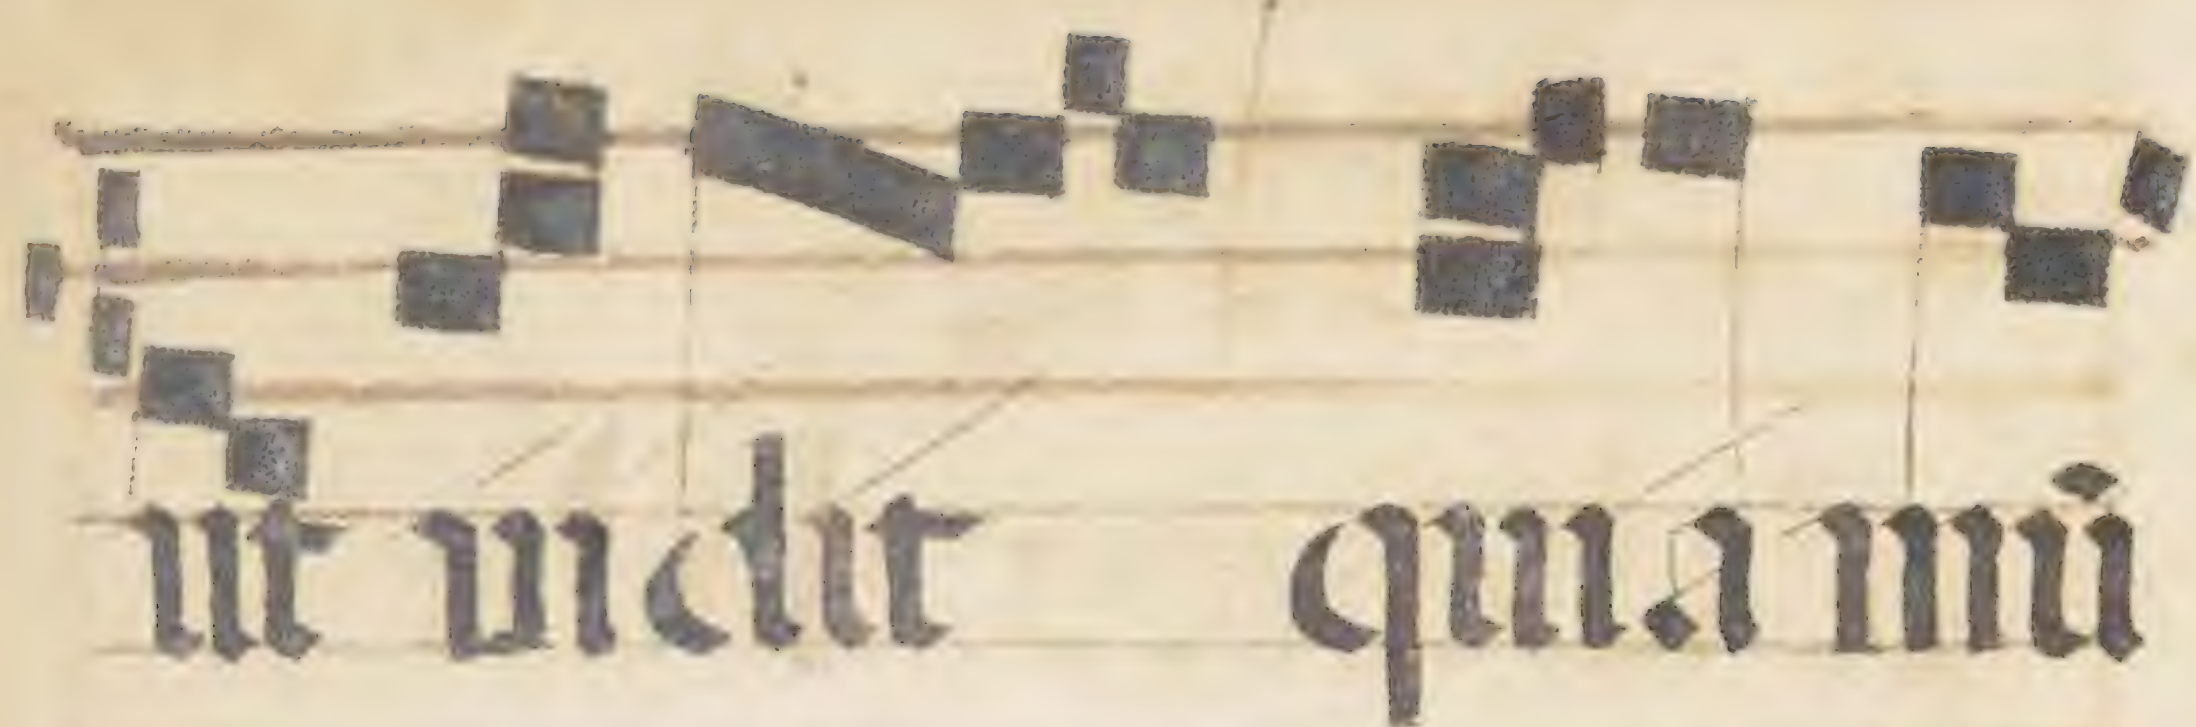 ut vi dit quia mū